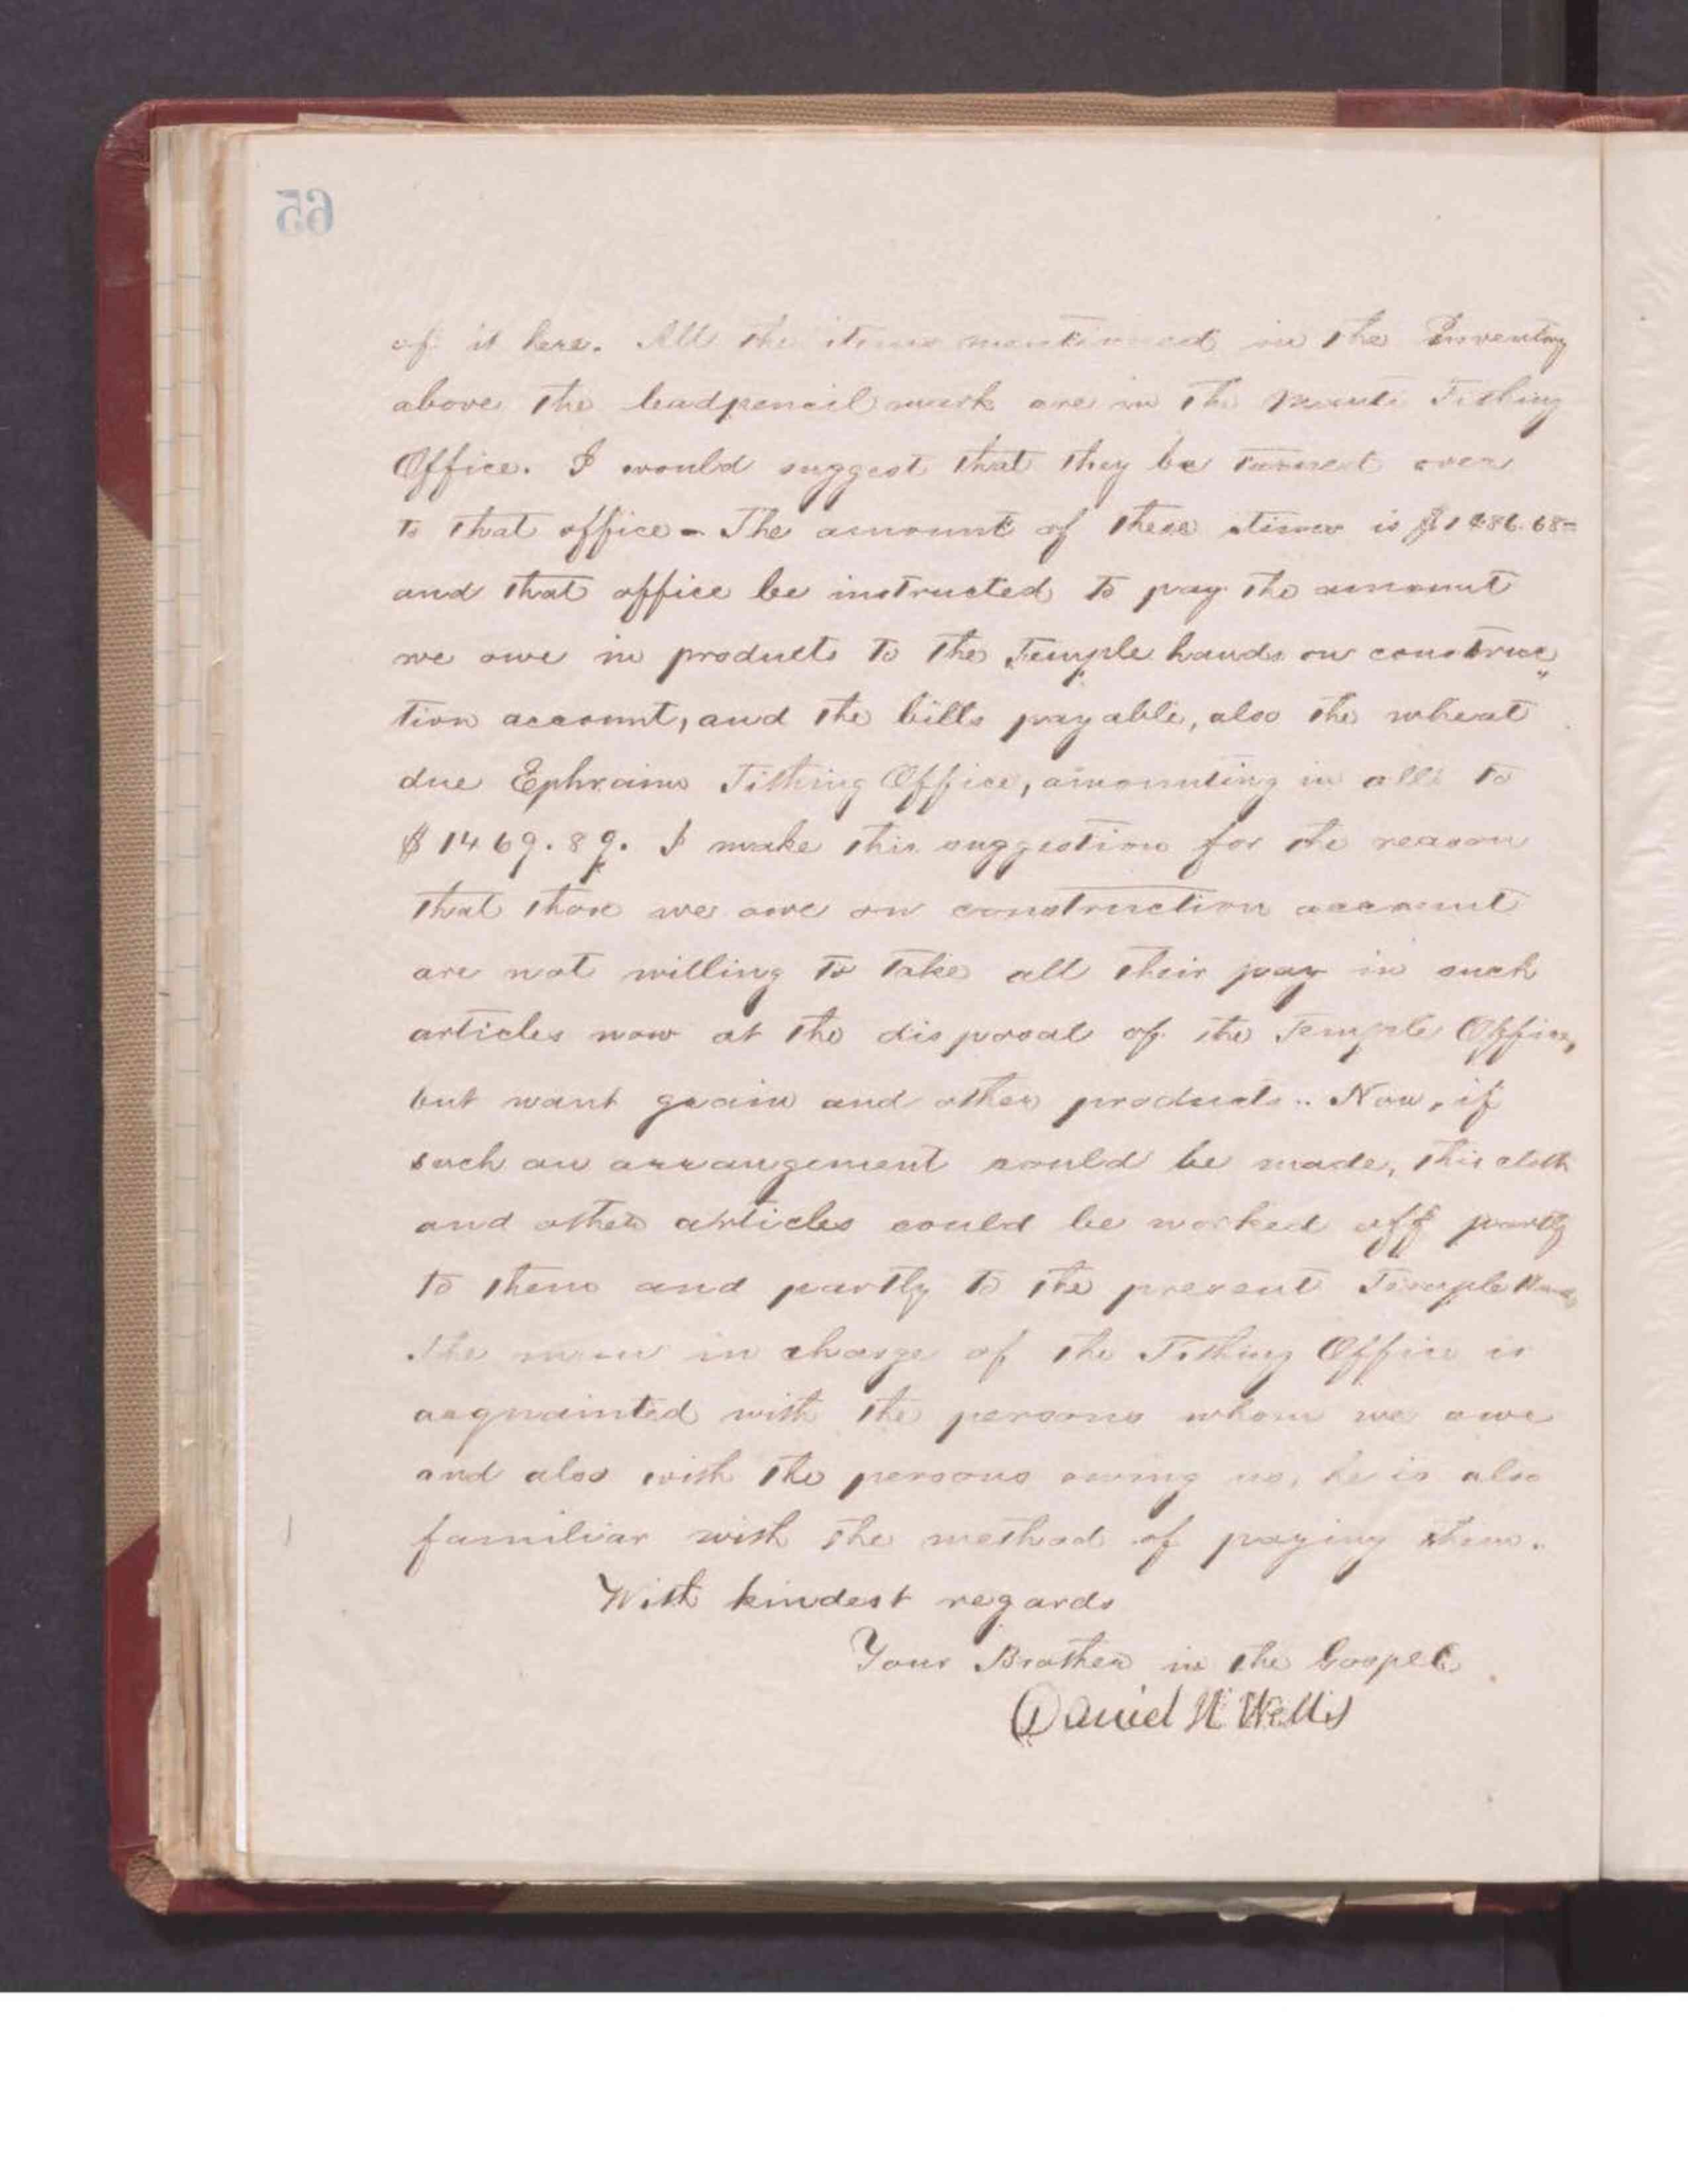 65
of it here. All the items mentioned in the Inventory
above the leadpencil mark are in the Manti Tithing
Office. I would suggest that they be turned over
to that office - The amount of these items is $1486.68=
and that office be instructed to pay the amount
we owe in products to the Temple hands on construc„
tion account, and the bills payable, also the wheat
due Ephraim Tithing Office, amounting in all to
$1469.89. I make this suggestion for the reason
that those we owe on construction account
are not willing to take all their pay in such
articles now at the disposal of the Temple Office,
but want grain and other products.. Now, if
such an arrangement could be made, this cloth
and other articles could be worked off partly
to them and partly to the present Temple Hands,
The man in charge of the Tithing Office is
acquainted with the persons whom we owe
and also with the persons owing us, he is also
familiar with the method of paying them.
With kindest regards
Your Brother in the Gospel
Daniel H Wells